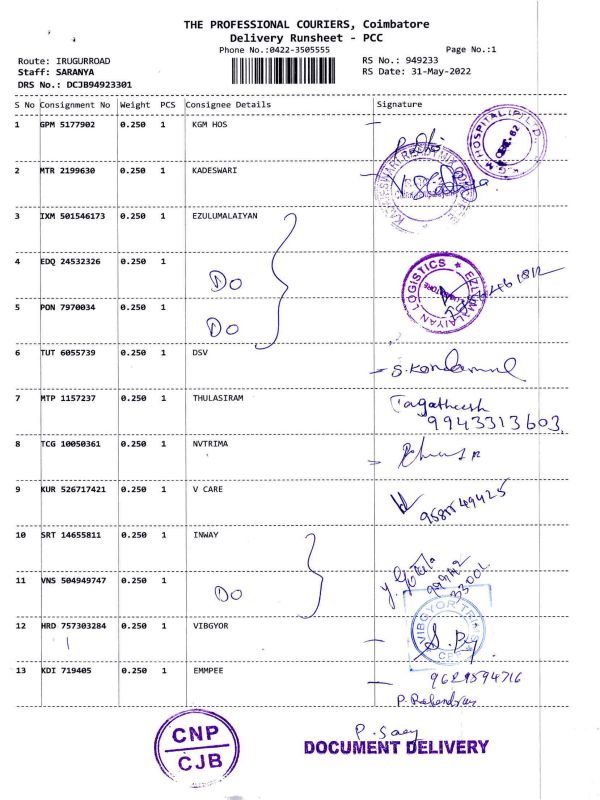 THE PROFESSIONAL COURIERS, Coimbatore
Delivery Runsheet - PCC
Phone No.:0422-3505555
Page No.:1
Route: IRUGURROAD
RS No.: 949233
Staff: SARANYA
RS Date: 31-May-2022
DRS No.: DCJB94923301
S No Consignment No Weight PCS Consignee Details Signature
1 GPM 5177902 0.250 1 KGM HOS
2 MTR 2199630 0.250 1 KADESWARI
3 IXM 501546173 0.250 1 EZULUMALAIYAN
4 EDQ 24532326 0.250 1 Do
5 PON 7970034 0.250 1 Do
EZLUMALAIYAN LOGISTICS
6 TUT 6055739 0.250 1 DSV
7 MTP 1157237 0.250 1 THULASIRAM
9943313603
8 TCG 10050361 0.250 1 NVTRIMA
9 KUR 526717421 0.250 1 V CARE
10 SRT 14655811 0.250 1 INWAY
11 VNS 504949747 0.250 1 Do
12 HRD 757303284 0.250 1 VIBGYOR
13 KDI 719405 0.250 1 EMMPEE
9629594716
CNP
CJB
DOCUMENT DELIVERY